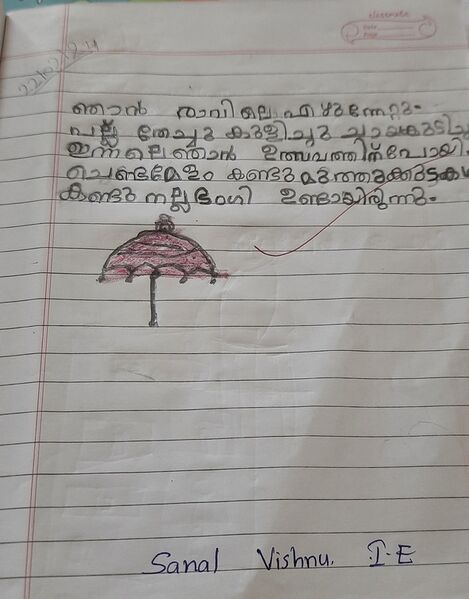 classmate
Date
Page
ഞാൻ രാവിലെ എഴുന്നേറ്റു.
പല്ല് തേച്ചു കുളിച്ചു ചായകുടിച്ചു
ഇന്നലെ ഞാൻ ഉത്സവത്തിന് പോയി.
ചെണ്ടമേളം കണ്ടു മുത്തുക്കുട
കണ്ടു നല്ല ഭംഗി ഉണ്ടായിരുന്നു.
Sanal Vishnu. I-E